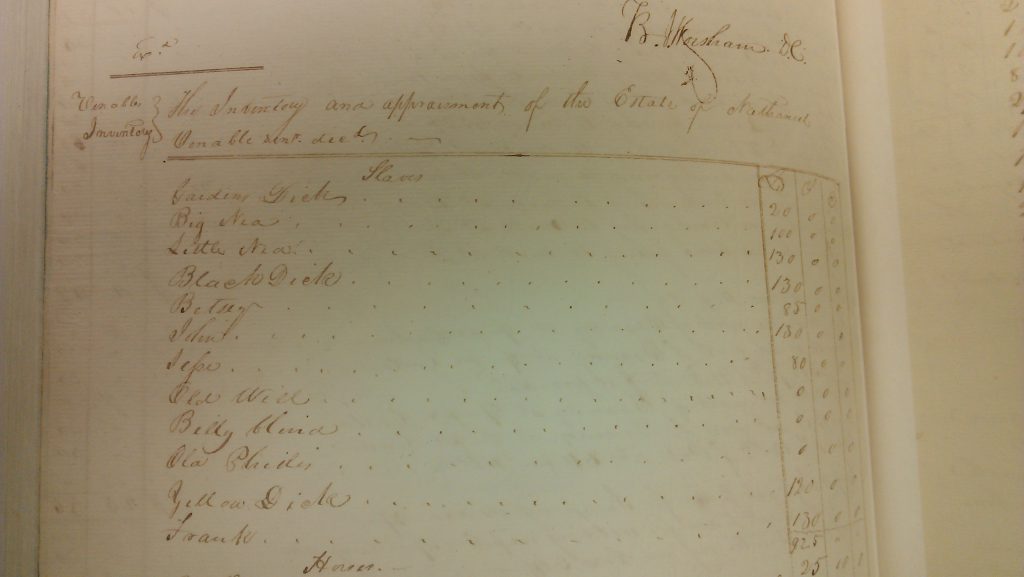 B. Worsham D.C.
Venable
Inventory
The Inventory and appraisment of the Estate of Nathaniel
Venable senr. decd.
Slaves
Dick 20 0 0
Big Ned 100 0 0
Little Ned 130 0 0
Black Dick 130 0 0
Betsey 85 0 0
John 130 0 0
Jesse 80 0 0
Old Will 0 0 0
Billy 0 0 0
Old Phillis 0 0 0
Yellow Dick 120 0 0
Frank 130 0 0
925
Horses
25